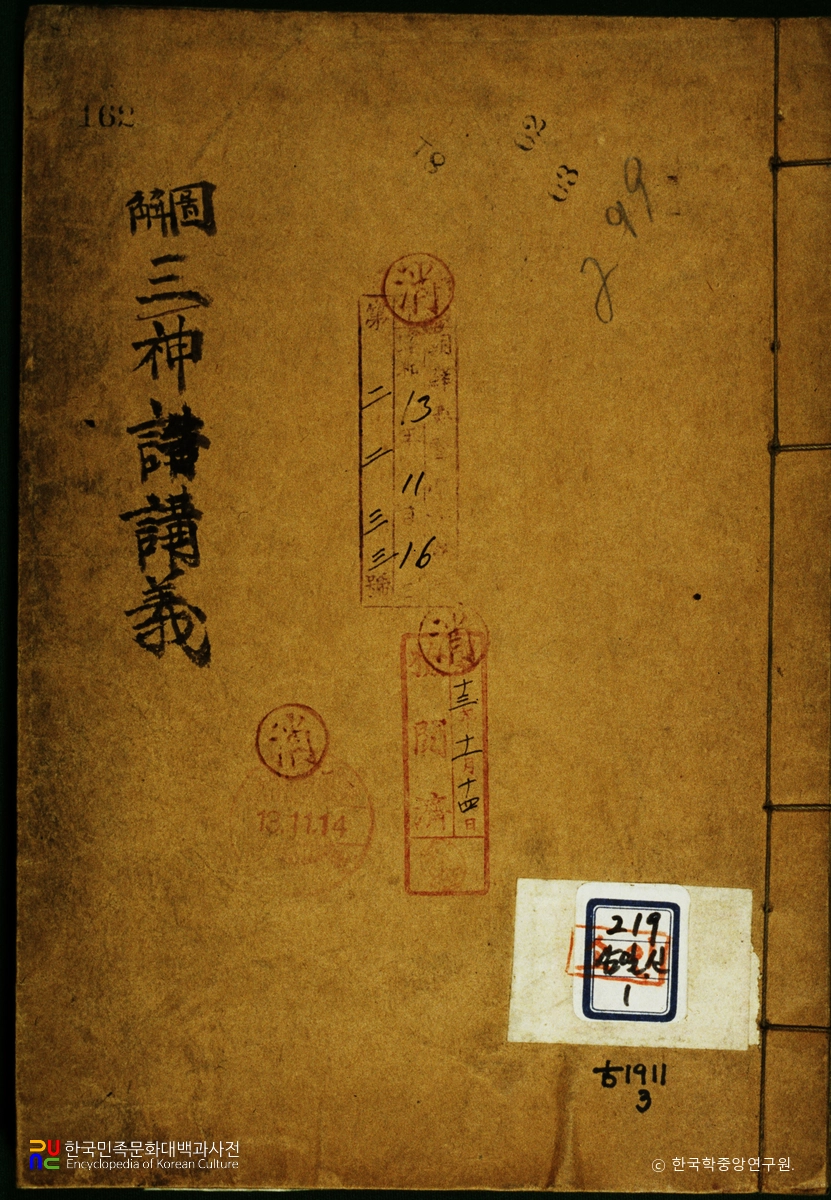 162
78
62
63
799
圖解
三一神誥講義
消
第二二三三號
13
11
16
消
十三年十一月十四日
閱濟
消
13.11.14
219
삼일신
1
古1911
3
한국민족문화대백과사전
Encyclopedia of Korean Culture
© 한국학중앙연구원.